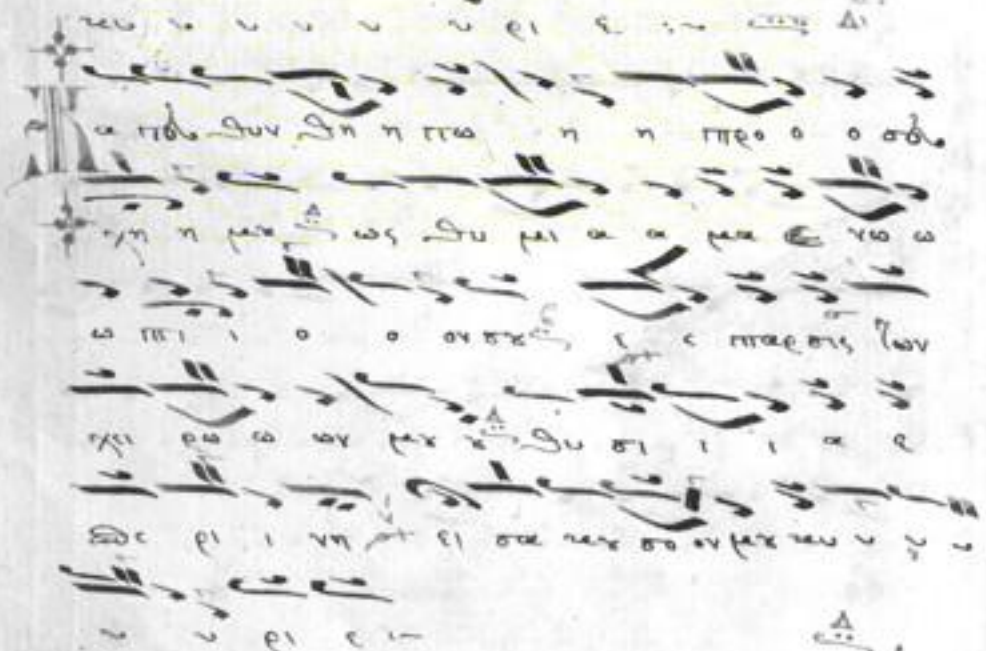 κυυ υ υ υ υ υ ρι ε :~ Δι
Κα τευ θυν θη η τω η η προ ο ο σευ
χη η μου Δ ως θυ μι α α μα ε νω ω
ω πι ι ο ο ον σου ε ε παρ σις των
χει ρω ω ων μου ου Δ θυ σι ι ι α ε
σπε ρι ι νη ει σα κου σο ον μου κυυ υ υ υ
υ υ ρι ε :~ Δ